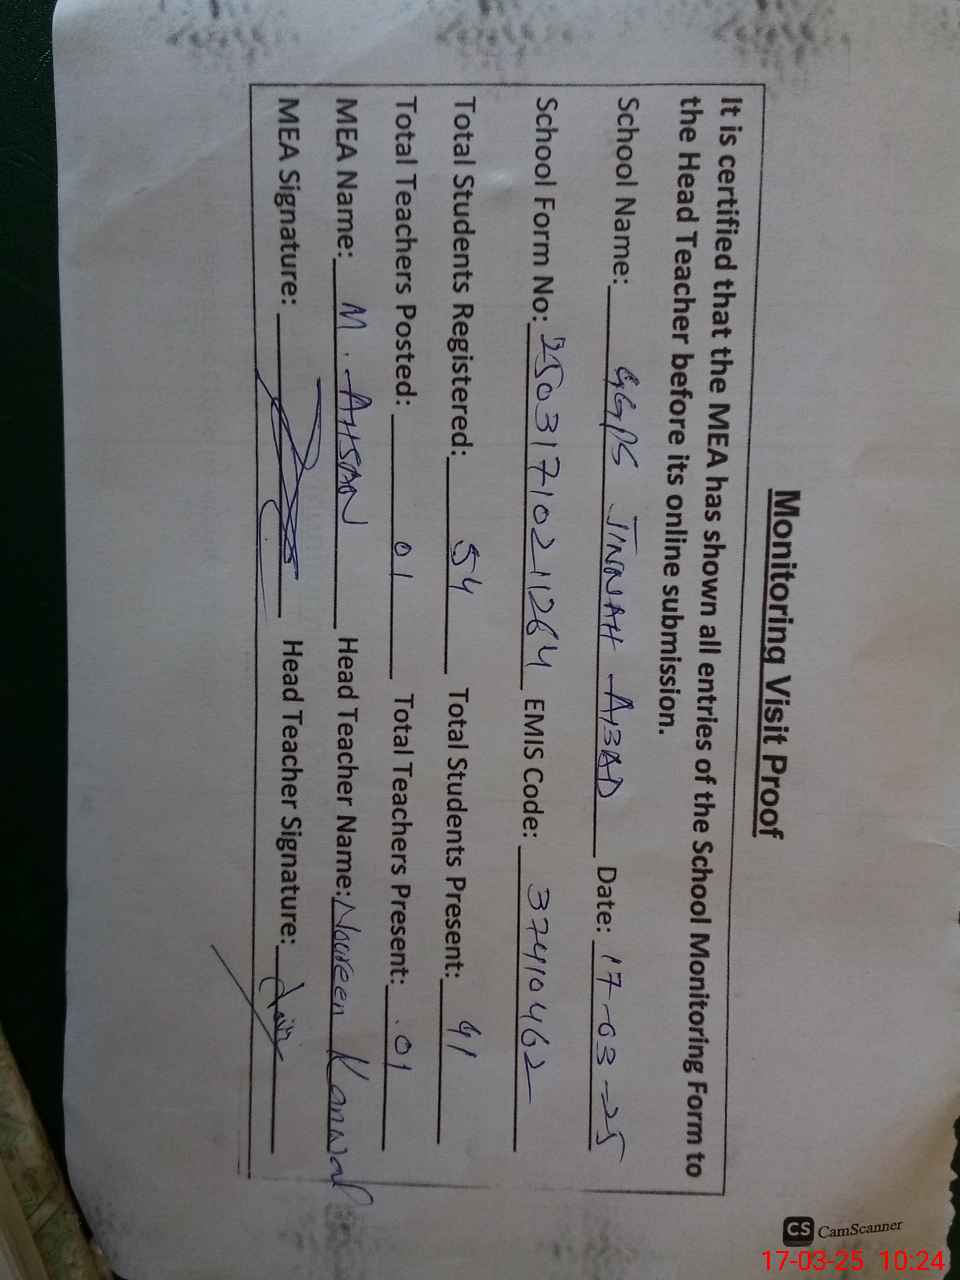 Monitoring Visit Proof
It is certified that the MEA has shown all entries of the School Monitoring Form to
the Head Teacher before its online submission.
School Name: GGPS JINNAH ABAD Date: 17-03-25
School Form No: 250317102 11264 EMIS Code: 37410462
Total Students Registered: 54 Total Students Present: 41
Total Teachers Posted: 01 Total Teachers Present: 01
MEA Name: M. AHSAN Head Teacher Name: Noureen Kanwal
MEA Signature: Head Teacher Signature:
CS CamScanner
17-03-25 10:24